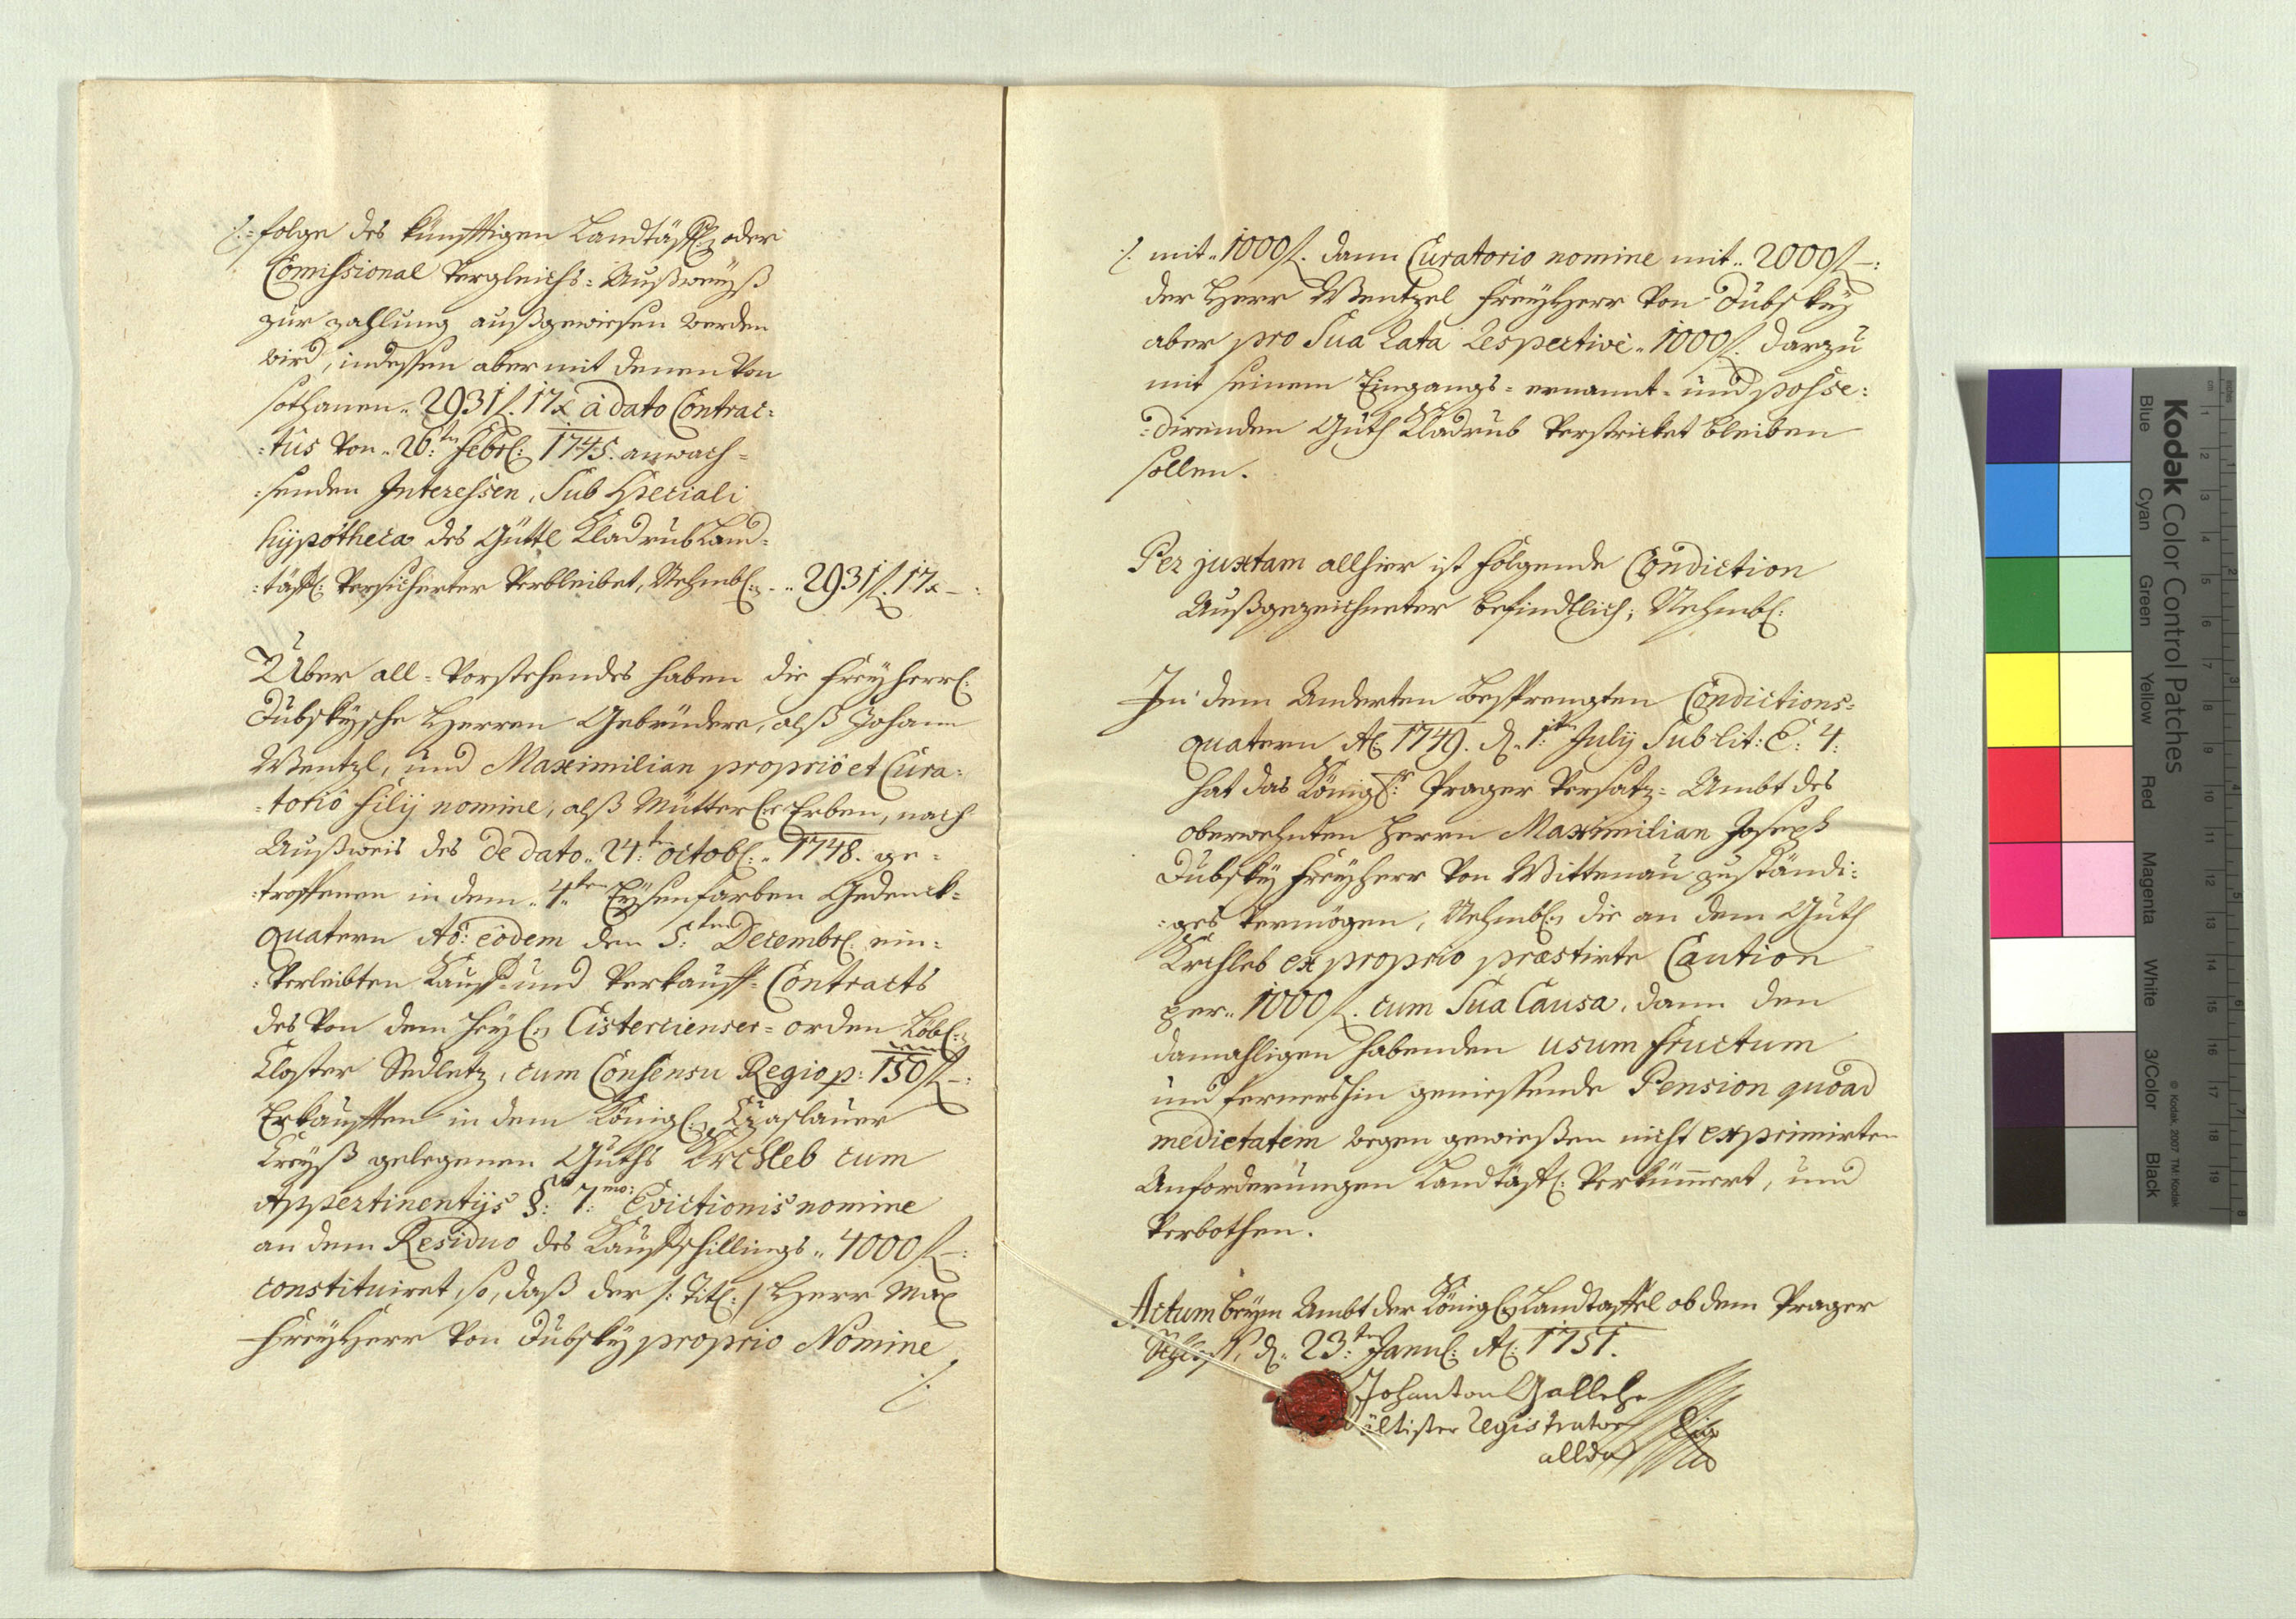 ./. folge des künfftigen Landtäffl: oder
Commissional Vergleichs-Außweyß
zur zahlung außgewiesen werden
wird, indessen aber mit denen von
sothanen „ 2931 f. 17 x à dato Contrac-
-tus von „ 26ten Febrl: 1745. anwach-
-senden Interessen, Sub Speciali
hypotheca des Güttl Kladrub Land-
-täfl: Versicherter Verbleibet, Nehmbl: „ 2931 f. 17 x —:
Über all-Vorstehendes haben die Freyherrl:
Dubskysche Herren Gebrüdere, alß Johann
Wentzl, und Maximilian propriô et Cura-
-toriô filij nomine, alß Mütterl:e Erben, nach
Außweis des de dato „ 24ten Octobl: „ 1748. ge-
-troffenen in dem „ 4ten Eysenfarben Gedenck-
quatern Aô: eôdem den 5:ten Decembrl: ein-
-Verleibten Kauff- und Verkauff-Contracts
des von dem Heyl: Cistercienser-orden Löbl:
Closter Sedletz, cum Consensu Regio p: 150 f —:
Erkaufften in dem Königl: Czaslauer
Creyß gelegenen Guths Krchleb cum
Appertinentijs §: 7:mo: Evictionis nomine
an dem Residuo des Kauffschillings „ 4000 f —:
constituiret, so, daß der /: Titl: / Herr Max
Freyherr von Dubsky proprio Nomine
./.
./. mit „ 1000 f. dann Curatorio nomine mit „ 2000 f —:
der Herr Wentzel Freyherr von Dubsky
aber pro Sua Rata Respective „ 1000 f. darzu
mit seinem Eingangs-ernannt- und posse-
-direnden Guth Kladrub Verstricket bleiben
sollen.
Per juxtam allhier ist folgende Condiction
Außgezeichneter befindtlich; Nehmbl:
In dem Anderten Besprengten Condictions-
quatern Aô 1749. d. 1:ten July Sub lit: C: 4:
hat das Königl: Prager Versatz-Ambt des
oberwehnten Herrn Maximilian Joseph
Dubsky Freyherr von Wittenau zuständi-
-ges Vermögen; Nehmbl: die an dem Guth
Krchleb ex proprio præstirte Caution
per „ 1000 f. cum Sua Causa, dann den
damahligen habenden usum fructum
und fernershin geniessende Pension quoad
medietatem wegen gewießen nicht exprimirten
Anforderungen Landtäfl: Verkümmert, und
Verbothen.
Actum beym Ambt der Königl: Landtaffel ob dem Prager
Schloß, d. 23:ten Januel: Aô: 1751.
Joh anton
ältister Registrator
allda